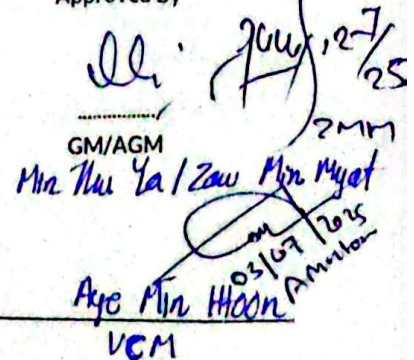 Approved by
27/25
GM/AGM
ZMM
Min Thu Ya / Zaw Min Myat
03/07/2025
Aye Min Htoon
VCM